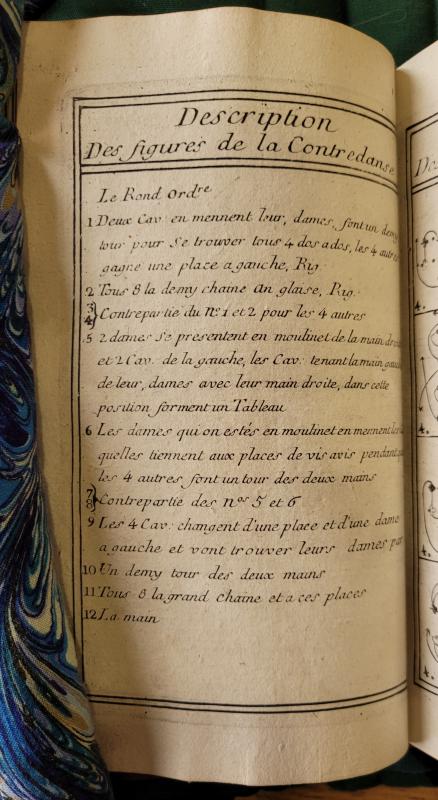 Description
Des figures de la Contredanse
Le Rond Ordre
1 Deux Cav: en mennent leur, dames, font un demy
tour pour se trouver tous 4 dos a dos, les 4 autre
gagne une place a gauche, Rig.
2 Tous 8 la demy chaine an glaise, Rig.
3
4 } Contrepartie du No. 1 et 2 pour les 4 autres
5 2 dames se presentent en moulinet de la main droite
et 2 Cav. de la gauche, les Cav: tenant la main gauche
de leur, dames avec leur main droite, dans cette
position forment un Tableau
6 Les dames qui on estés en moulinet en mennent
quelles tiennent aux places de vis avis pendant
les 4 autres, font un tour des deux mains
7
8 } Contrepartie des nos 5 et 6
9 Les 4 Cav: changent d'une place et d'une dame
a gauche et vont trouver leurs dames par
10 Un demy tour des deux mains
11 Tous 8 la grand chaine et a ces places
12 La main
4.